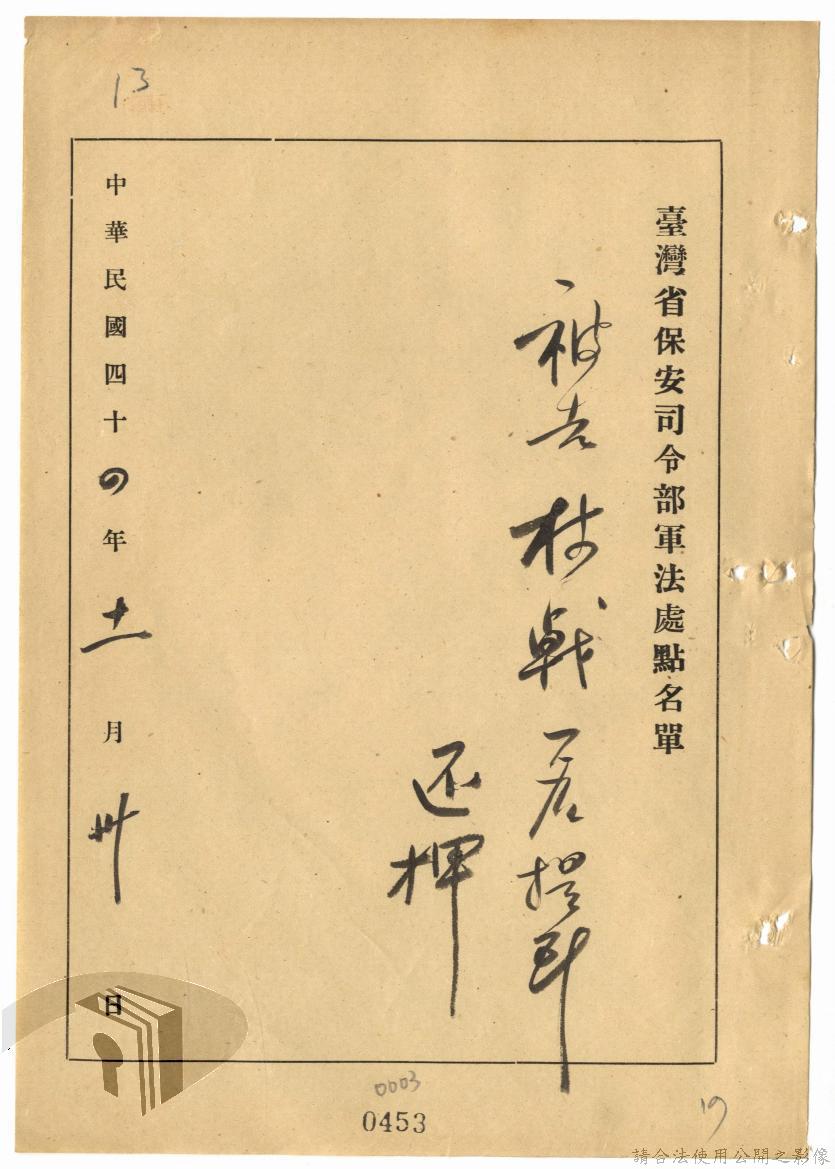 13
臺灣省保安司令部軍法處點名單
被告林戰居提到
还押
中華民國四十四年十一月卅日
0003
0453
19
請合法使用公開之影像